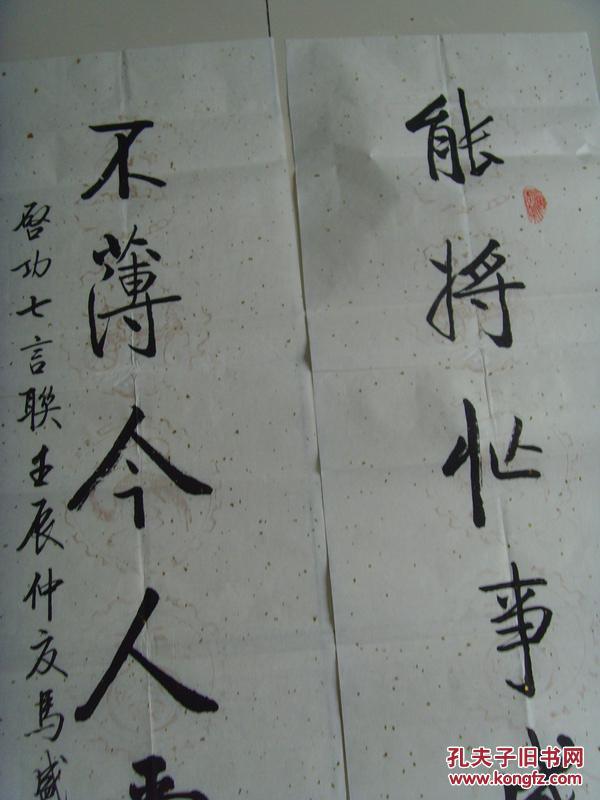 能将忙事成
不薄今人
啓功七言聯壬辰仲夏馬盛
孔夫子旧书网
www.kongfz.com